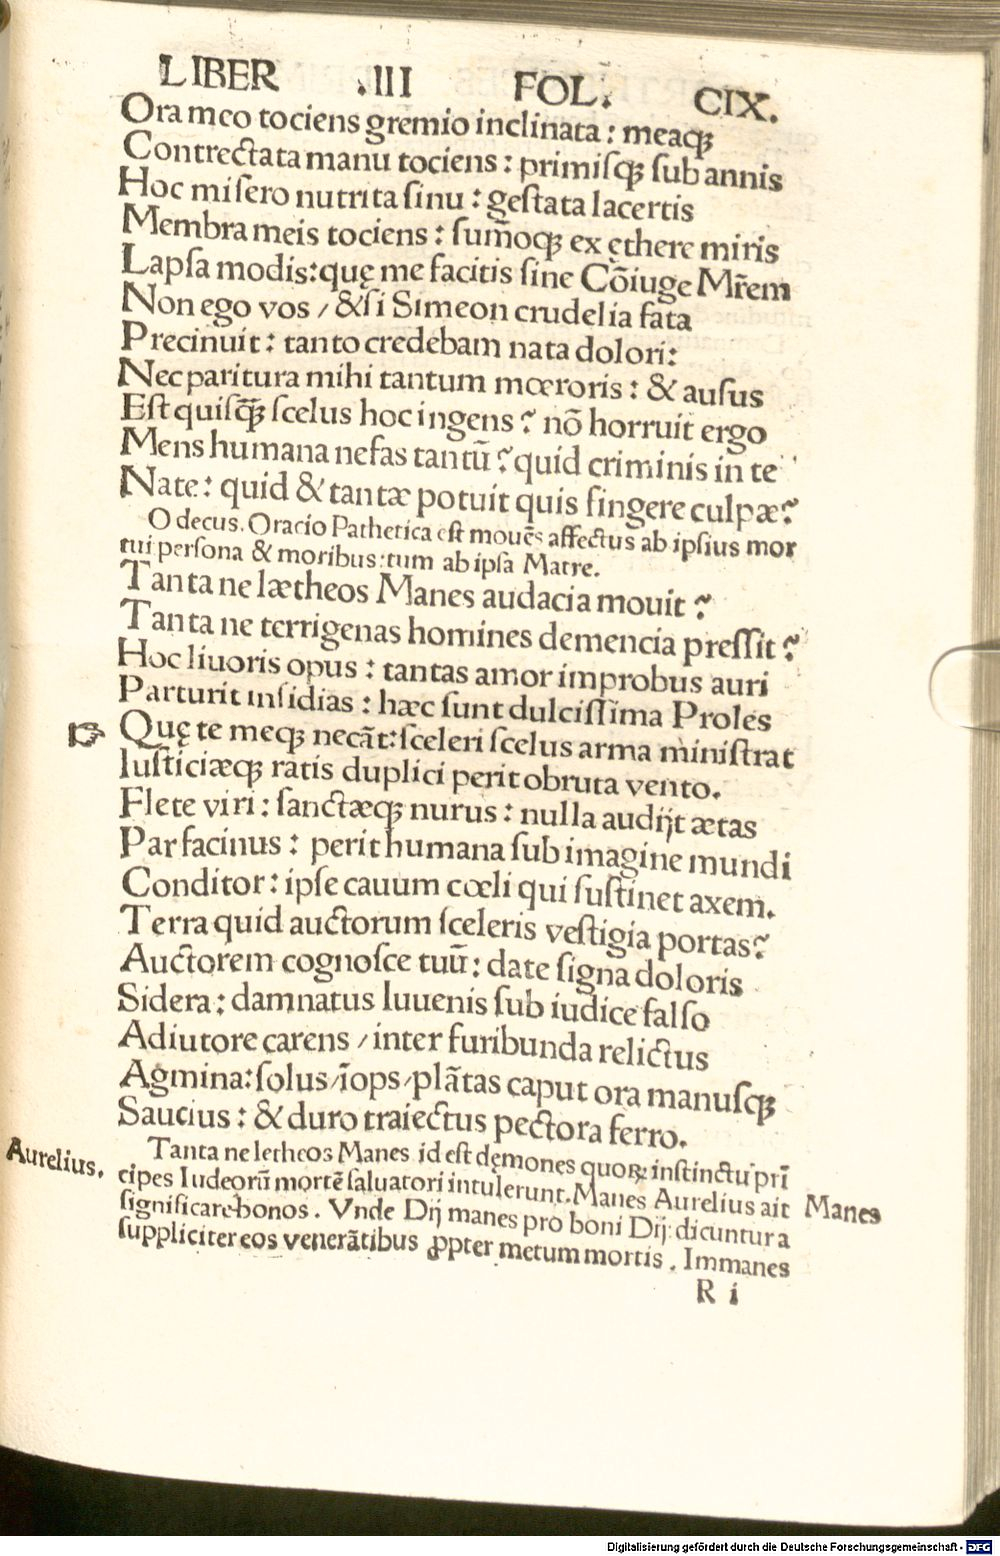 LIBER .III FOL. CIX.
Ora meo tociens gremio inclinata : meaqꝫ
Contrectata manu tociens : primiſqꝫ ſub annis
Hoc miſero nutrita ſinu : geſtata lacertis
Membra meis tociens : ſum̄oqꝫ ex ęthere miris
Lapſa modis: quę me facitis ſine Cōiuge Mr̄em
Non ego vos / & ſi Simeon crudelia fata
Precinuit : tanto credebam nata dolori :
Nec paritura mihi tantum mœroris : & auſus
Eſt quiſqꝫ̄ ſcelus hoc ingens ? nō horruit ergo
Mens humana nefas tantū ? quid criminis in te
Nate : quid & tantæ potuit quis fingere culpæ?
O decus. Oracio Pathetica eſt mouēs affectus ab ipſius mor
tui perſona & moribus: tum ab ipſa Matre.
Tanta ne lætheos Manes audacia mouit ?
Tanta ne terrigenas homines demencia preſſit ?
Hoc liuoris opus : tantas amor improbus auri
Parturit inſidias : hæc ſunt dulciſſima Proles
☞ Quę te meqꝫ necāt: ſceleri ſcelus arma miniſtrat
Iuſticiæqꝫ ratis duplici perit obruta vento.
Flete viri : ſanctæqꝫ nurus : nulla audijt ætas
Par facinus : perit humana ſub imagine mundi
Conditor : ipſe cauum cœli qui ſuſtinet axem.
Terra quid auctorum ſceleris veſtigia portas?
Auctorem cognoſce tuū : date ſigna doloris
Sidera : damnatus Iuuenis ſub iudice falſo
Adiutore carens / inter furibunda relictus
Agmina: ſolus / īops / plātas caput ora manuſqꝫ
Saucius : & duro traiectus pectora ferro.
Tanta ne letheos Manes id eſt dęmones quoꝝ inſtinctu prī
Aurelius. cipes Iudeorū mortē ſaluatori intulerunt. Manes Aurelius ait Manes
ſignificare bonos. Vnde Dij manes pro boni Dij dicuntur a
ſuppliciter eos venerātibus ꝓpter metum mortis. Immanes
R i
Digitalisierung gefördert durch die Deutsche Forschungsgemeinschaft - DFG